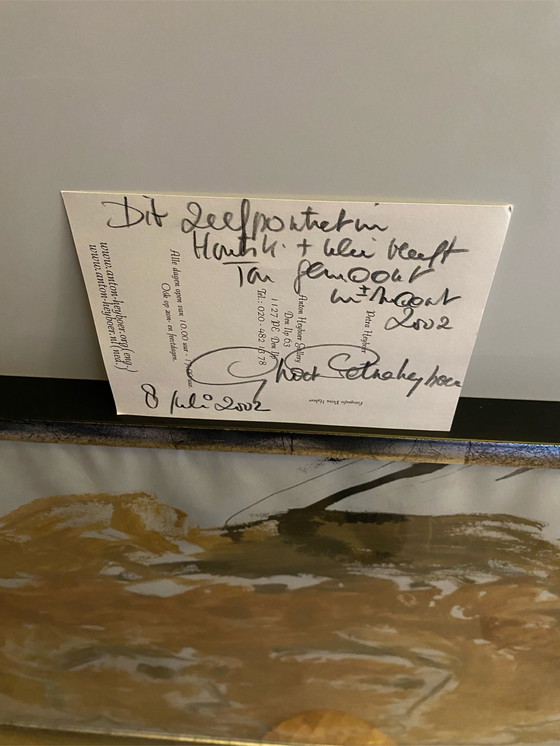 Dit Zelfportret in
Houtsk. + klei heeft
Ton gemaakt
in ± maart
2002
Petra heyboer
8 juli 2002
Petra Heyboer
Anton Heyboer Gallery
Den Ilp 63
1127 PE Den Ilp
Tel.: 020 - 482 1678
Alle dagen open van 10.00 uur -
Ook op zon- en feestdagen.
www.anton-heyboer.org (eng.)
www.anton-heyboer.nl (ned.)
Fotografie Petra Heyboer